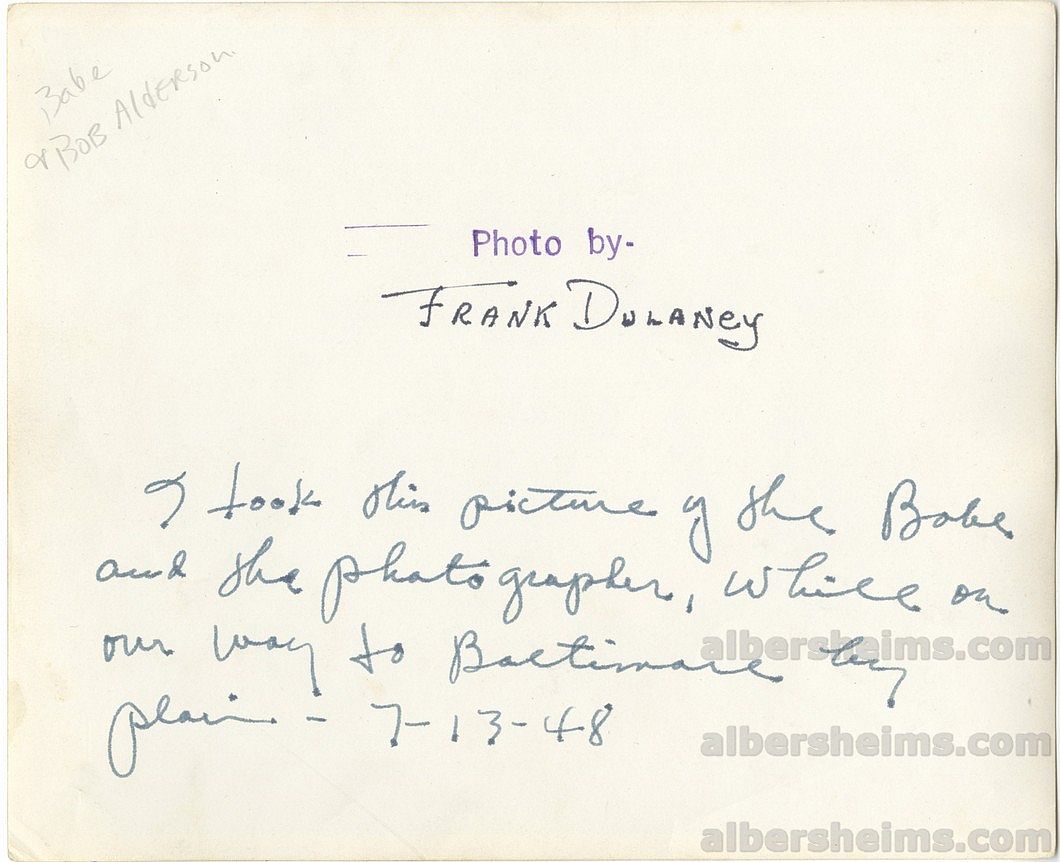 Babe
& BOB AlDERSON
Photo by-
FRANK DULANEY
I took this picture of the Babe
and the photographer, while on
our way to Baltimore by
plain - 7-13-48
albersheims.com
albersheims.com
albersheims.com